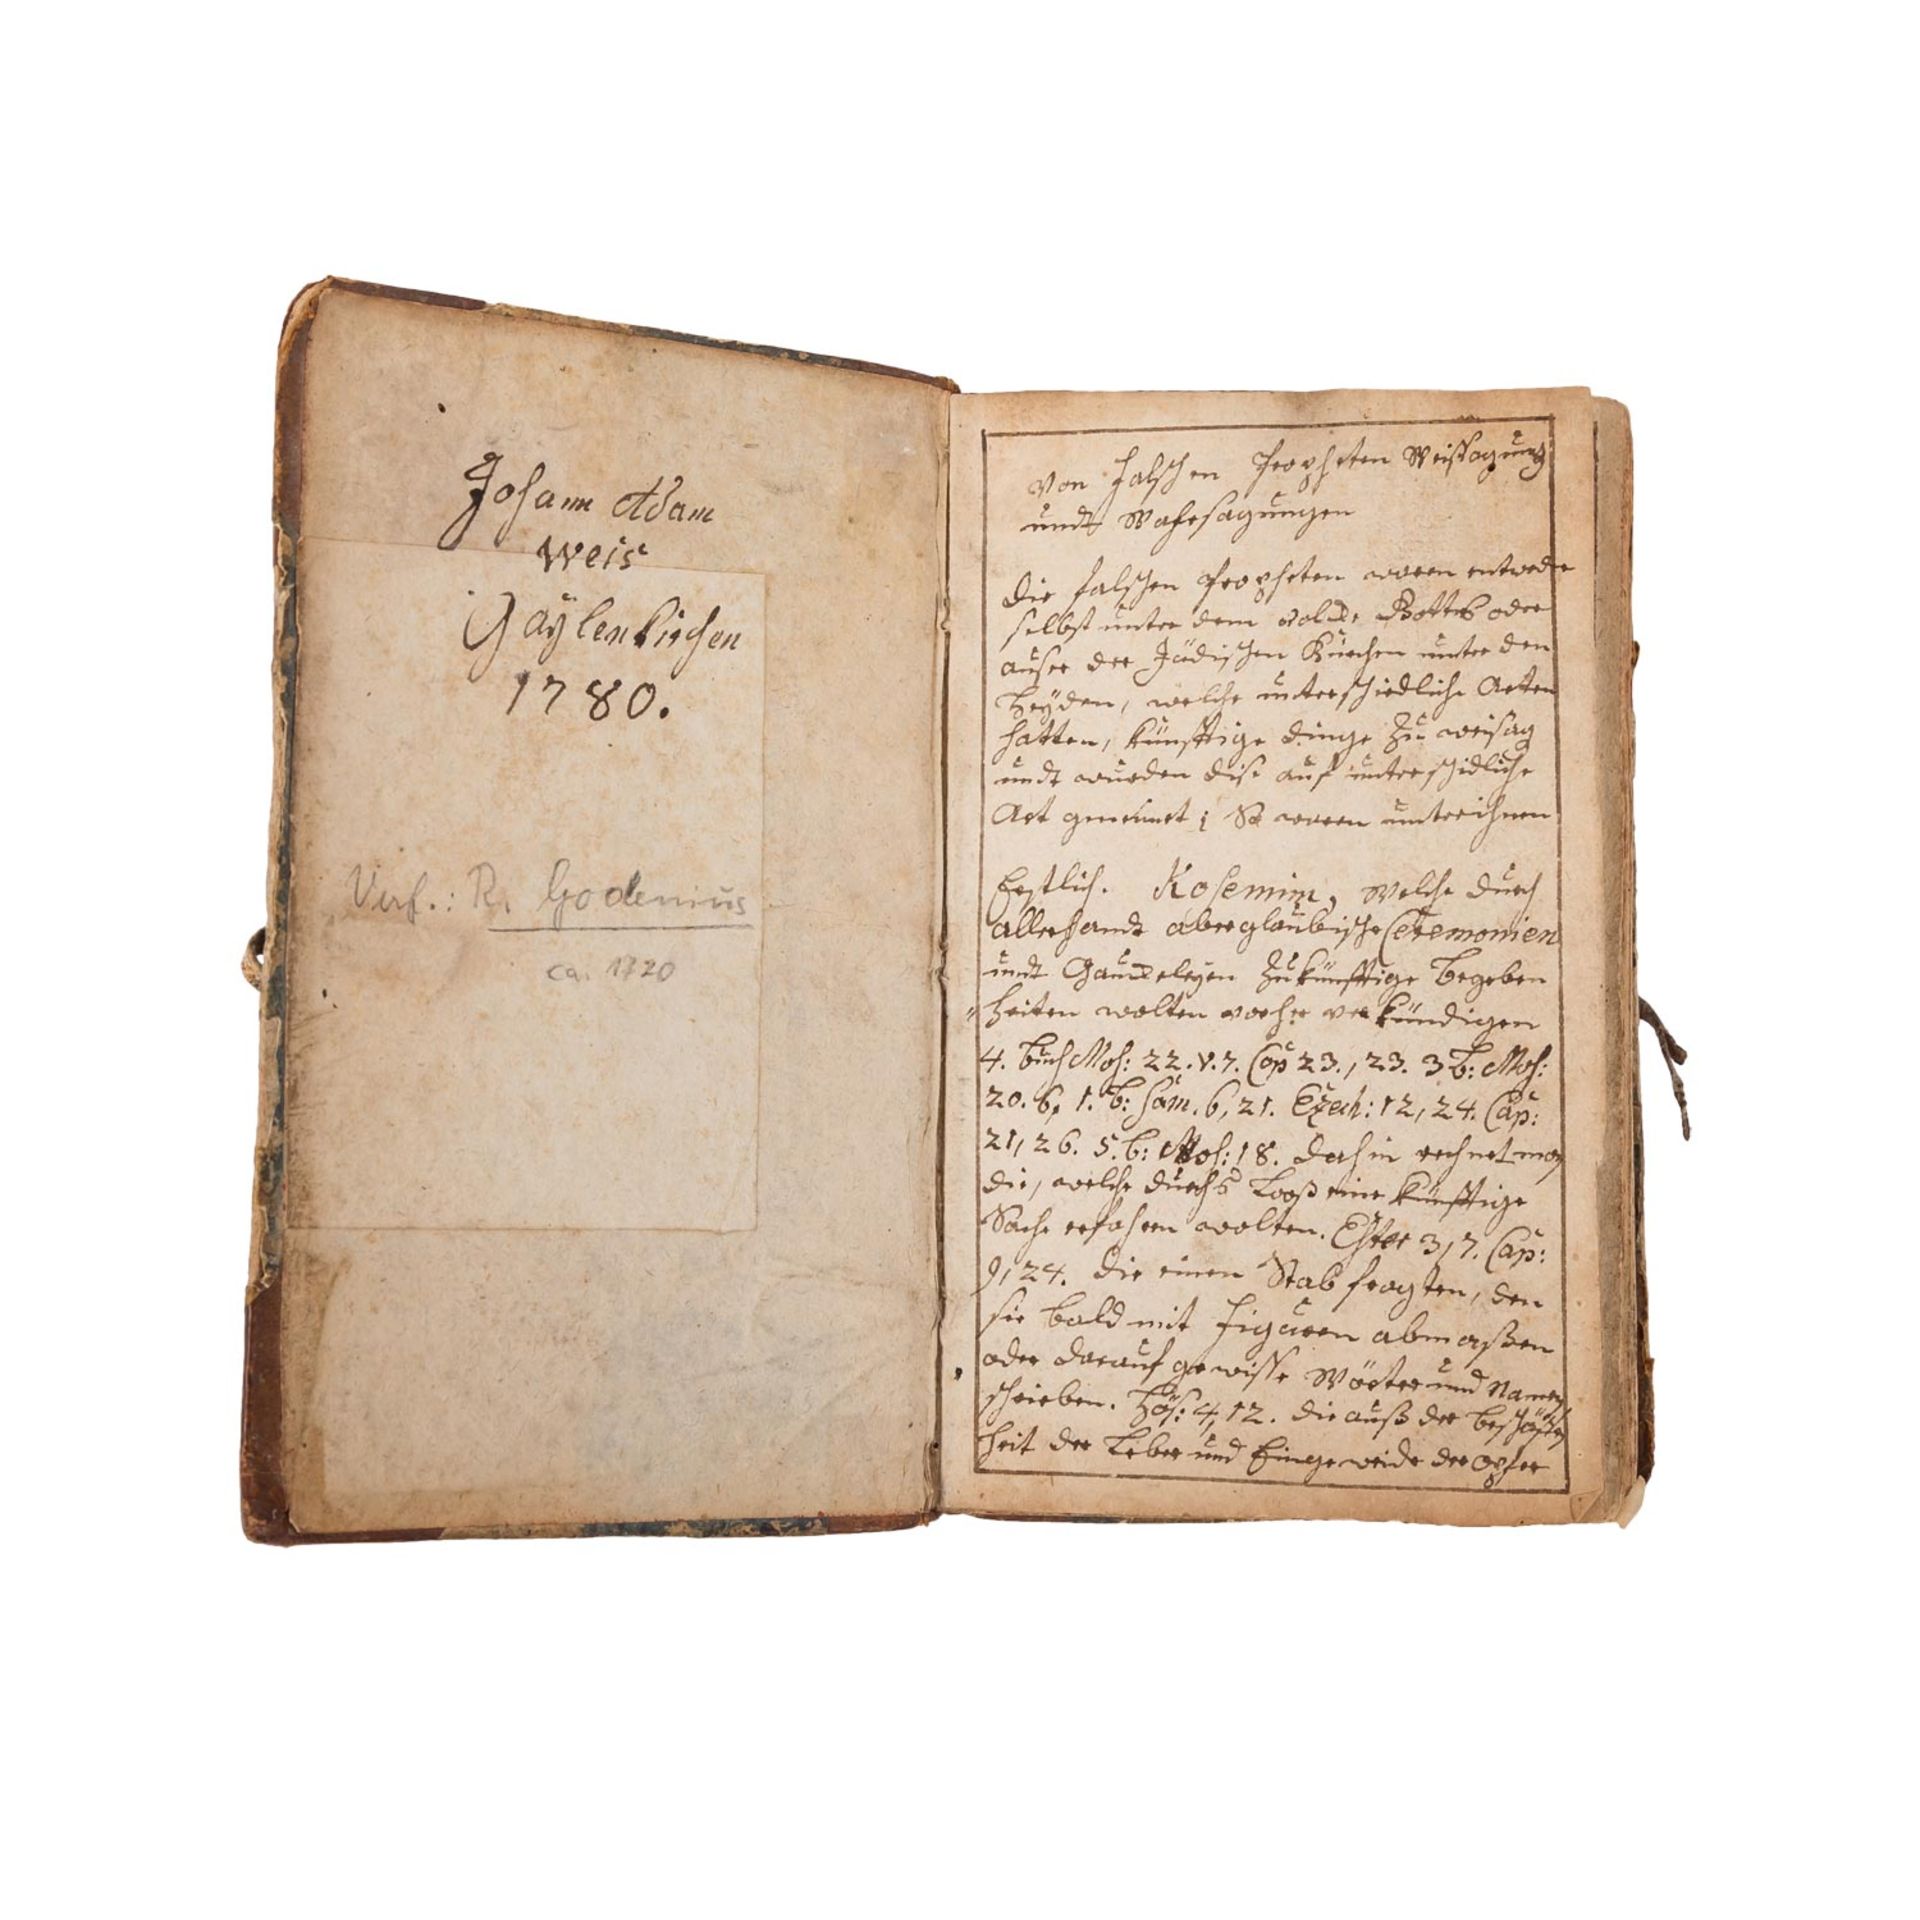 Johann Adam
Weis
Gaÿlenkirchen
1780.
Verf.: R. Godenius
ca. 1720
Von falschen Propheten Weissagung
undt Wahrsagungen
Die falschen Propheten waren entweder
selbst unter dem volcke Gottes oder
auser der Jüdischen Kirchen unter den
Heyden, welche unterschiedliche Arten
hatten, künfftige dinge zu weisag
undt wurden dise auf unterschidliche
Art genennet; So waren unter ihnen
Erstlich. Kosemim, welche durch
allerhandt aberglaubische Ceremonien
undt Gauckeleyen zukünfftige Begeben
"heiten wolten vorher verkündigen
4. buch Mos: 22. v. 7. Cap 23., 23. 3 b: Mos:
20. 6, 1. b: Sam. 6, 21. Ezech: 12, 24. Cap:
21, 26. 5. b: Mos: 18. dahin rechnet man
die, welche durchs Looß eine künfftige
Sache erfahren wolten. Ester 3, 7. Cap:
9, 24. die einen Stab fragten, den
sie bald mit Figuren abmaßen
oder darauf gewisse Wörter und Namen
schrieben. Hos: 4, 12. die auß der beschaffen
heit der Leber und Eingeweide der opfer